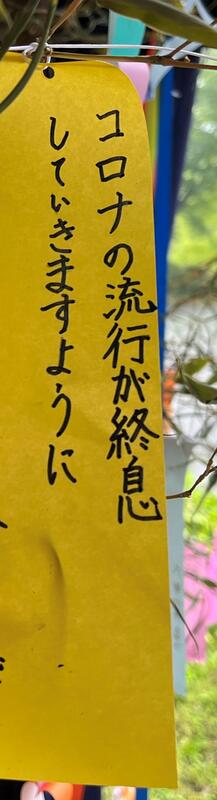 コロナの流行が終息
していきますように